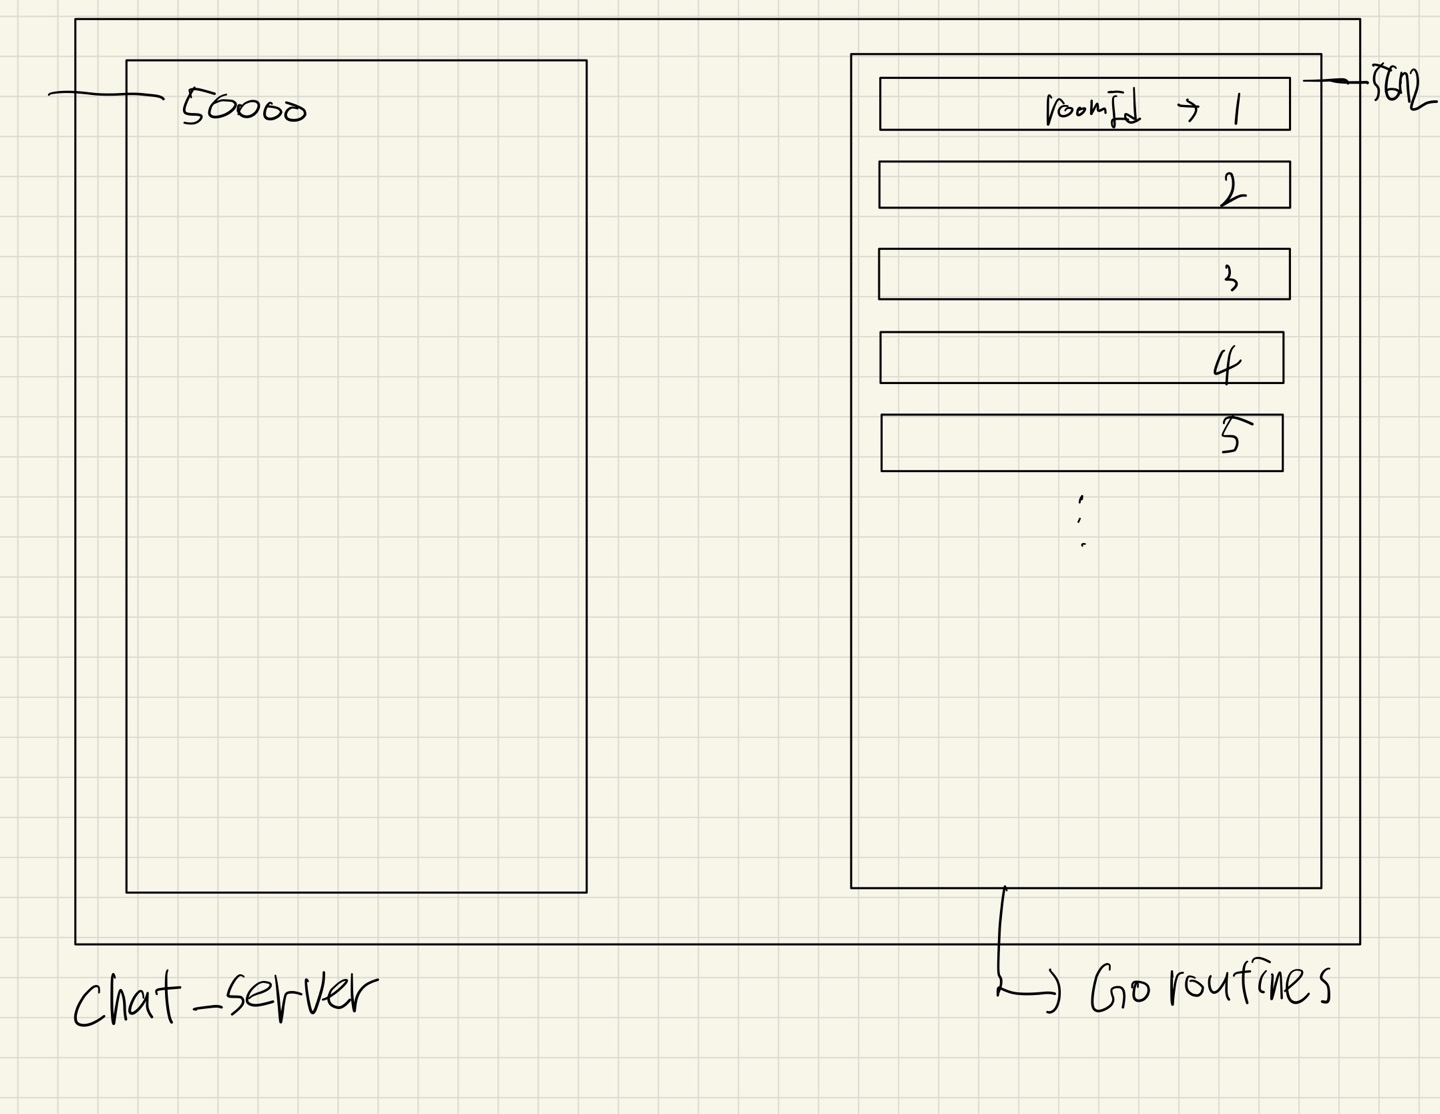 50000
roomId → 1
5672
2
3
4
5
⋮
Chat_server
Go routines